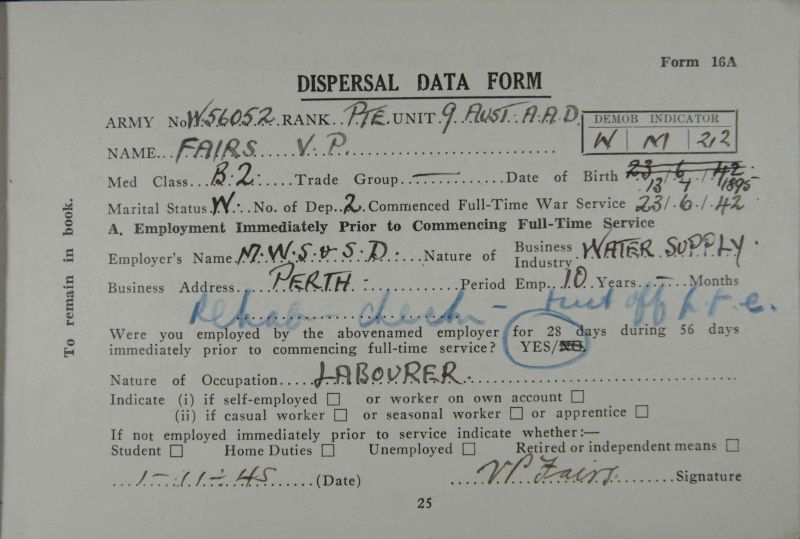 Form 16A
DISPERSAL DATA FORM
ARMY No. W56052 RANK PTE UNIT 9 AUST. A.A.D.
DEMOB INDICATOR
W | M | 2,2
NAME FAIRS V. P.
Med Class B.2 Trade Group — Date of Birth 23/6/42
13/7/1895
Marital Status W. No. of Dep. 2 Commenced Full-Time War Service 23/6/42
A. Employment Immediately Prior to Commencing Full-Time Service
Employer's Name M.W.S. & S.D. Nature of Business Industry WATER SUPPLY.
Business Address PERTH Period Emp. 10 Years — Months
Rehab check
Were you employed by the abovenamed employer for 28 days during 56 days
immediately prior to commencing full-time service? YES/NO.
Nature of Occupation LABOURER.
Indicate (i) if self-employed □ or worker on own account □
(ii) if casual worker □ or seasonal worker □ or apprentice □
If not employed immediately prior to service indicate whether:—
Student □ Home Duties □ Unemployed □ Retired or independent means □
1-11-45 (Date) VP Fairs Signature
25
To remain in book.